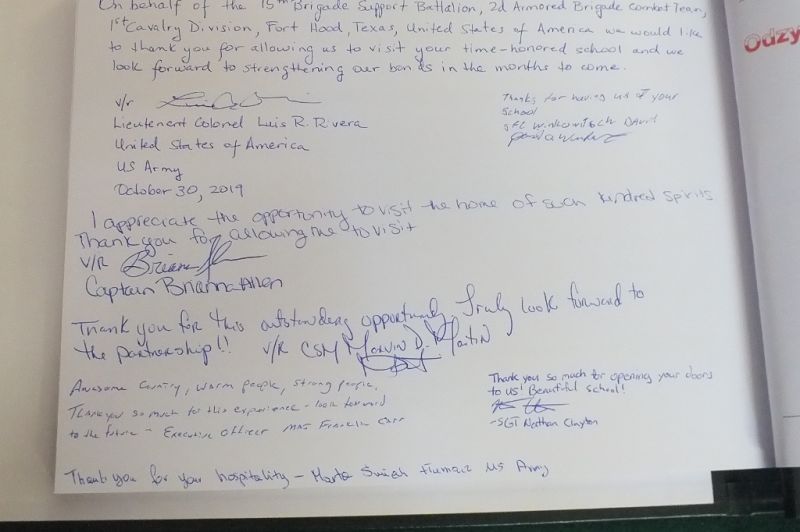 On behalf of the 15th Brigade Support Battalion, 2d Armored Brigade Combat Team,
1st Cavalry Division, Fort Hood, Texas, United States of America we would like
to thank you for allowing us to visit your time-honored school and we
look forward to strengthening our bonds in the months to come.
v/r
Lieutenant Colonel Luis R. Rivera
United States of America
US Army
October 30, 2019
Thanks for having us at your
School
David
I appreciate the opportunity to visit the home of such kindred spirits
Thank you for allowing me to visit
V/R
Captain Brianna Allen
Thank you for this outstanding opportunity Truly look forward to
the partnership!! V/R CSM Marvin D. Martin
Awesome Country, warm people, strong people.
Thank you so much for this experience - look forward
to the future - Executive Officer MAJ Franklin Carr
Thank you so much for opening your doors
to us! Beautiful School!
-SGT Nathan Clayton
Thank you for your hospitality - US Army
Odzy